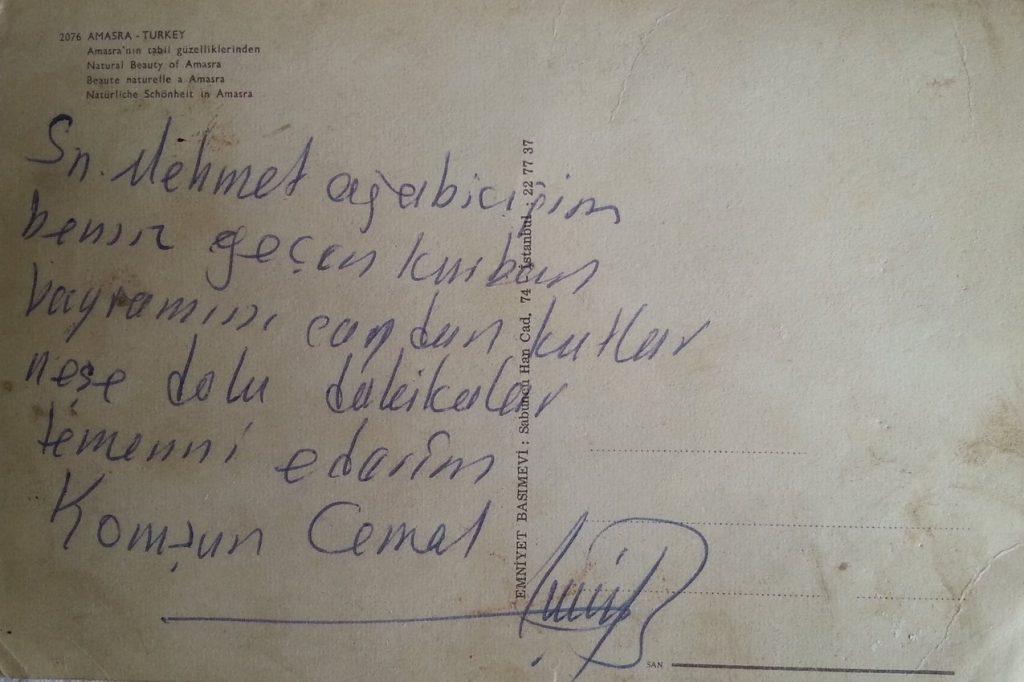 2076 AMASRA - TURKEY
Amasra'nın tabii güzelliklerinden
Natural Beauty of Amasra
Beaute naturelle a Amasra
Natürliche Schönheit in Amasra
Sn. Mehmet ağabiciğim
geçen kurban
bayramını candan kutlar
neşe dolu dakikalar
temenni ederim
Komşun Cemal
EMNİYET BASIMEVİ : Sabuncu Han Cad. 74 - İstanbul : 22 77 37
SAN